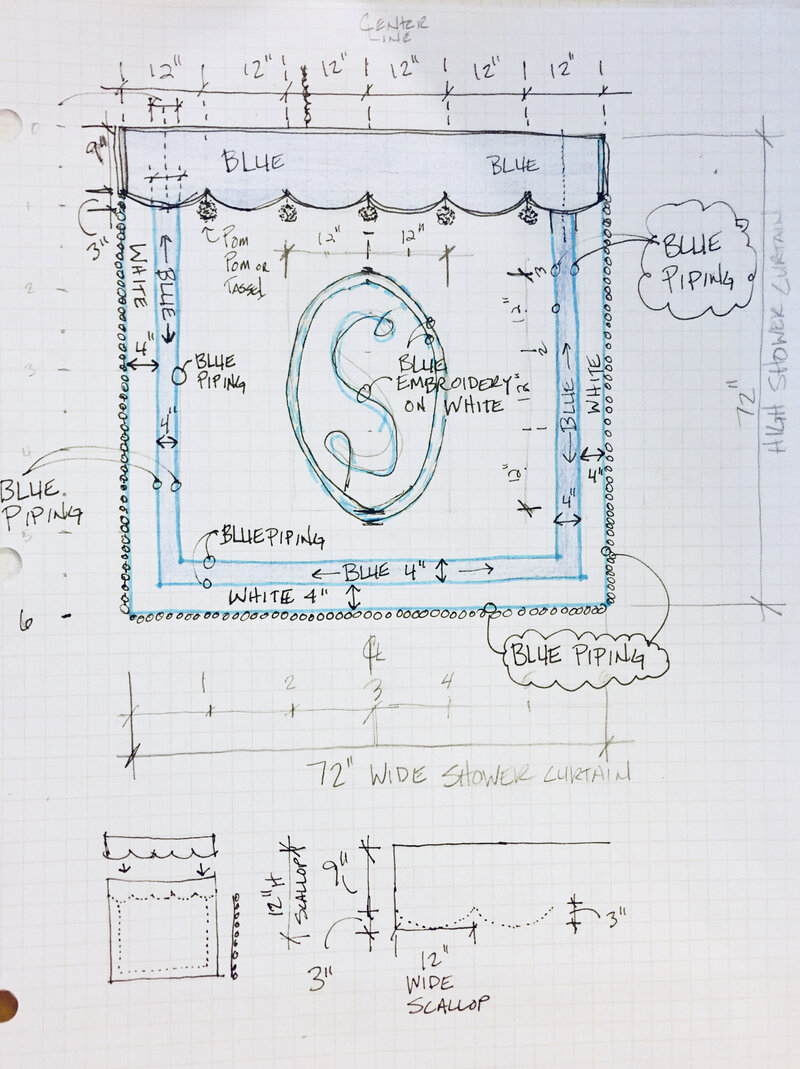 CENTER
LINE
12" 12" 12" 12" 12" 12"
0
9"
BLUE BLUE
1
3"
POM
POM OR
TASSEL
12" 12"
WHITE
BLUE
BLUE
PIPING
2
3
12"
2
12"
1
12"
3
4"
BLUE
PIPING
BLUE
EMBROIDERY
ON WHITE
BLUE
WHITE
72"
HIGH SHOWER CURTAIN
4"
4"
4"
4
BLUE
PIPING
5
BLUE PIPING
BLUE 4"
WHITE 4"
6
BLUE PIPING
CL
1 2 3 4
72" WIDE SHOWER CURTAIN
12" H
SCALLOP
9"
3"
3"
12"
WIDE
SCALLOP